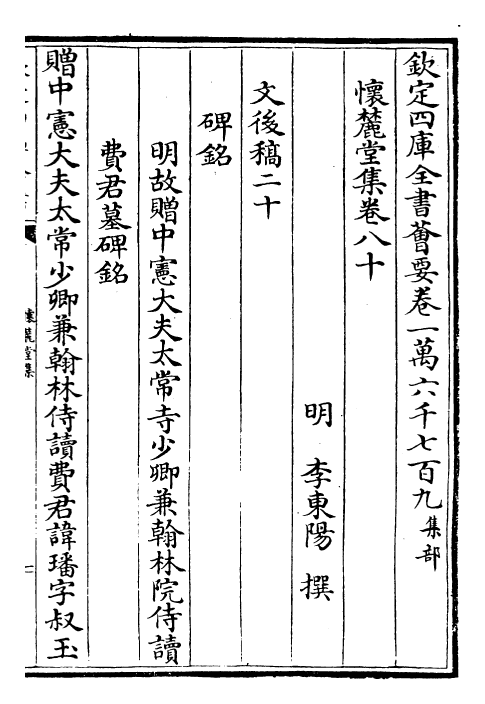 欽定四庫全書薈要卷一萬六千七百九集部
懷麓堂集卷八十
明 李東陽 撰
文後稿二十
碑銘
明故贈中憲大夫太常寺少卿兼翰林院侍讀
費君墓碑銘
贈中憲大夫太常少卿兼翰林侍讀費君諱璠字叔玉
懷麓堂集